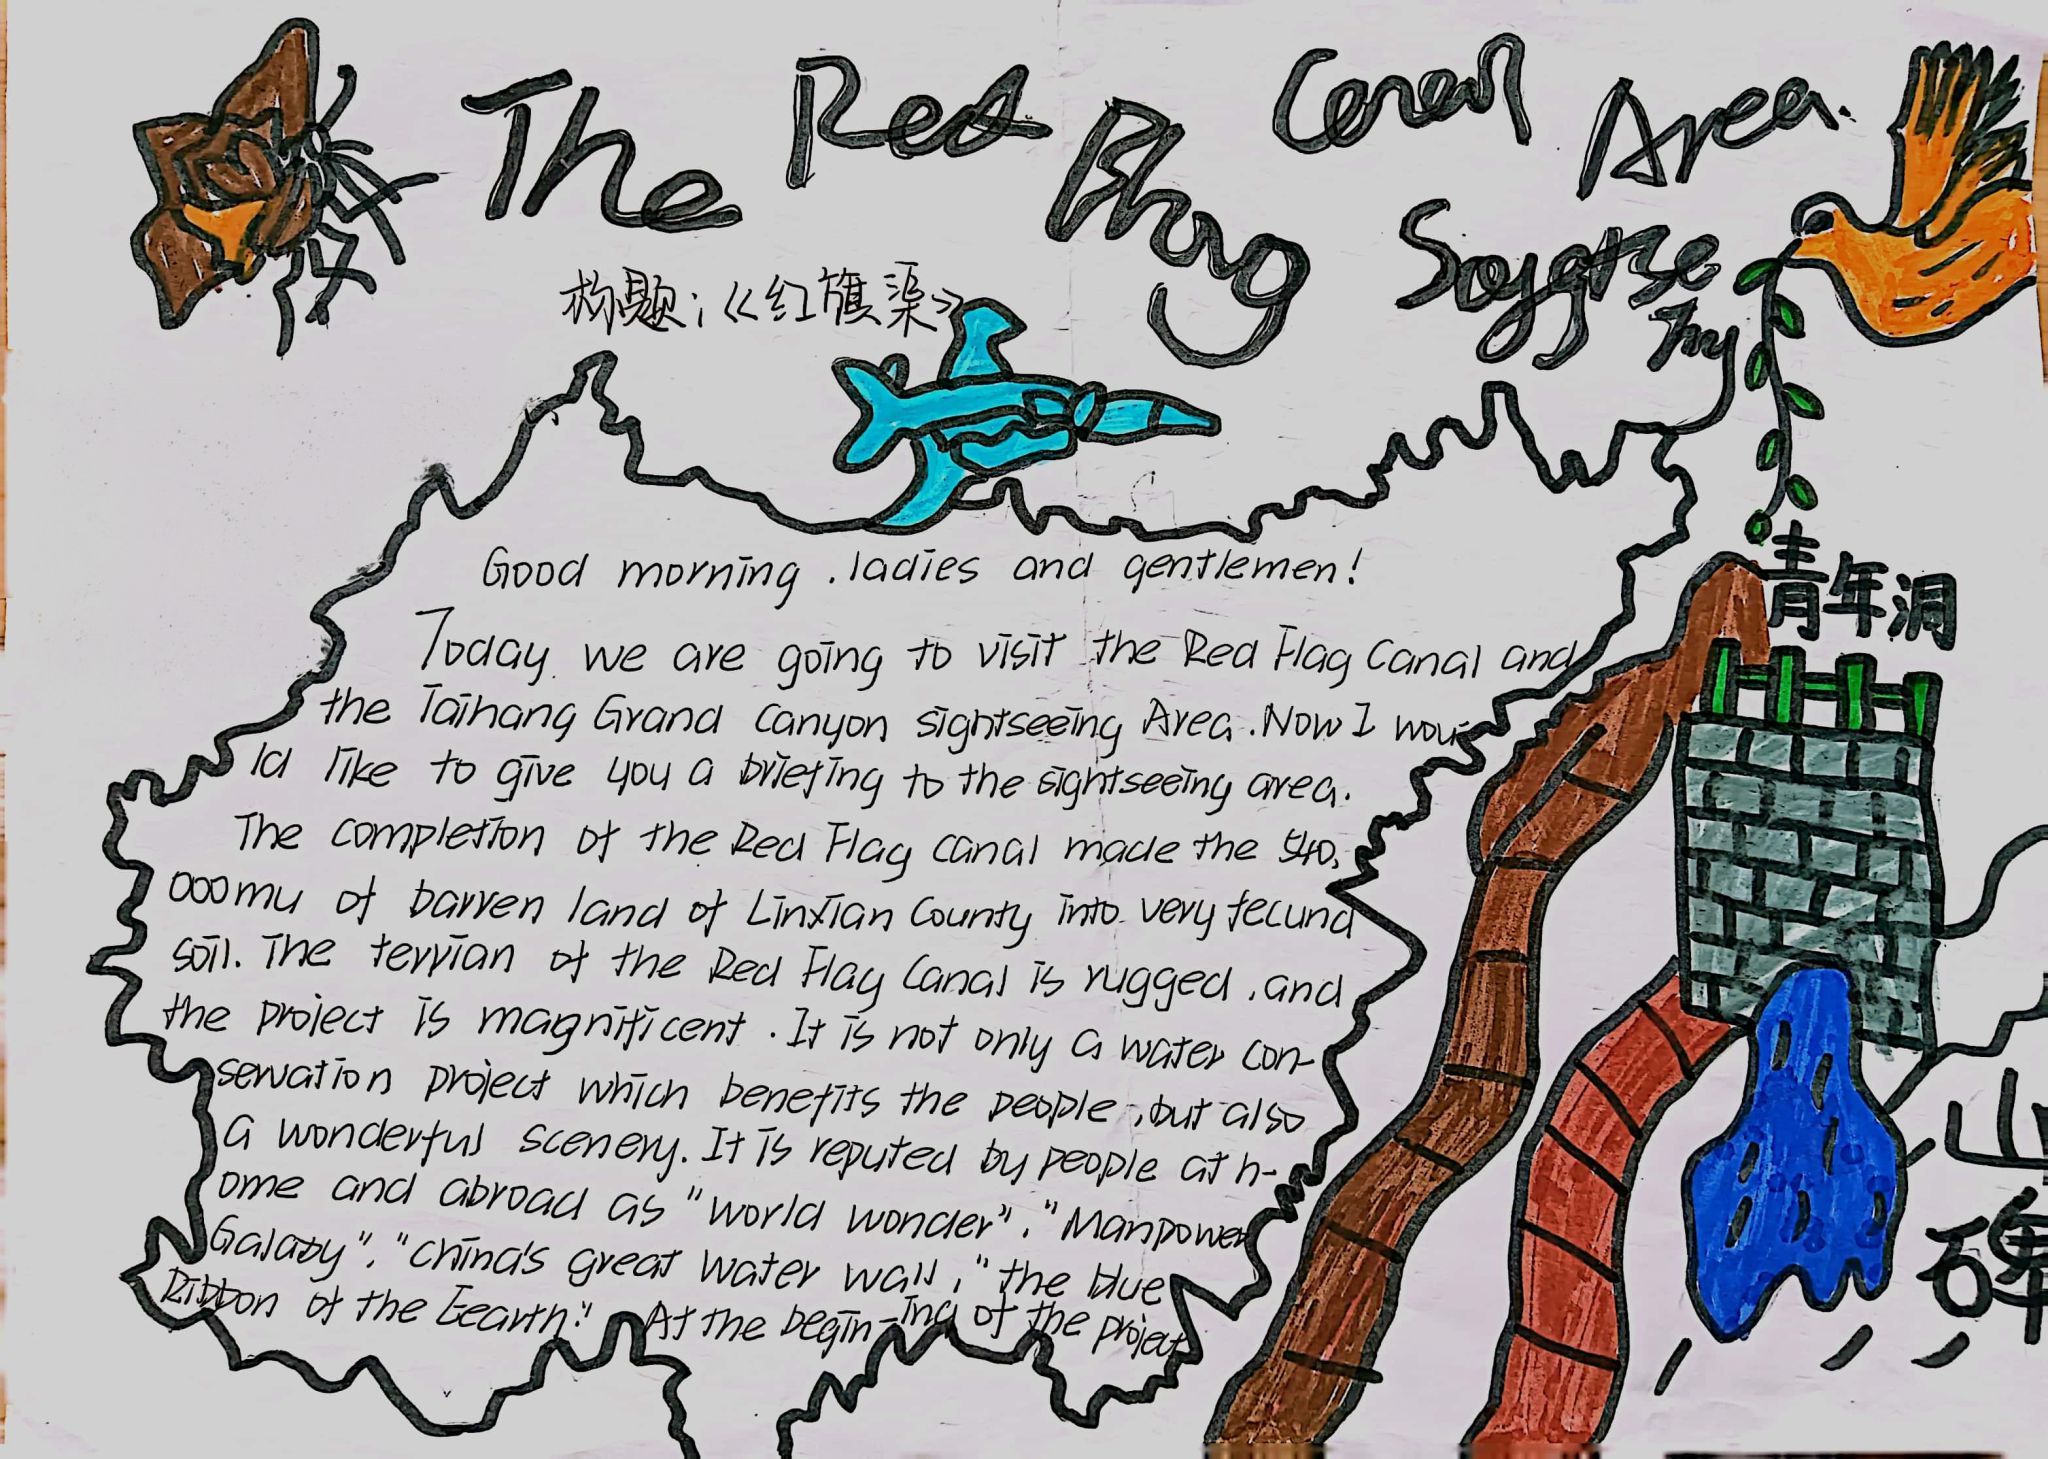 The Red Flag Canal Area.
标题:《红旗渠》
Good morning. ladies and gentlemen!
Today we are going to visit the Red Flag Canal and
the Taihang Grand Canyon sightseeing Area. Now I wou-
ld like to give you a briefing to the sightseeing area.
The completion of the Red Flag Canal made the 540,
000mu of barren land of Linxian County into very fecund
soil. The terrian of the Red Flag Canal is rugged, and
the project is magnificent. It is not only a water con-
servation project which benefits the people, but also
a wonderful scenery. It is reputed by people at h-
ome and abroad as "world wonder". "Manpower
Galaxy". "China's great water wall," "the blue
Ribbon of the Eearth". At the begin-ing of the project
青年洞
山
碑